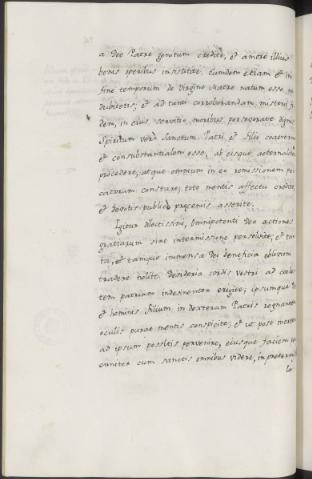 a Deo Patre genitum credite, et amore illius
bonis operibus insistite. Eumdem etiam et in
fine temporum de Virgine Matre natum esse, ne
dubitetis; et ad tanti corroborandam mysterii fi
dem, in eius servitio, moribus, perseverate dignis
Spiritum vero Sanctum Patri, et Filio coaeternum
et consubstantialem esse, ab eisque aeternaliter
procedere, atque omnium in eo remissionem pec
catorum constare, toto mentis affectu credite,
et devotis publice praeconiis asserite.
Igitur dilectissimi, Omnipotenti Deo actiones
gratiarum sine intermissione persolvite, et tan
ta, et tamque immensa Dei beneficia oblivioni
tradere nolite. Desideria cordis vestri ad caeles
tem patriam indesinenter erigite; ipsumque Dei
et hominis Filium in dexteram Patris regnantem
oculis purae mentis conspicite, et ut post mortem
ad ipsum possitis pervenire, eiusque faciem
cum sanctis omnibus videre, in